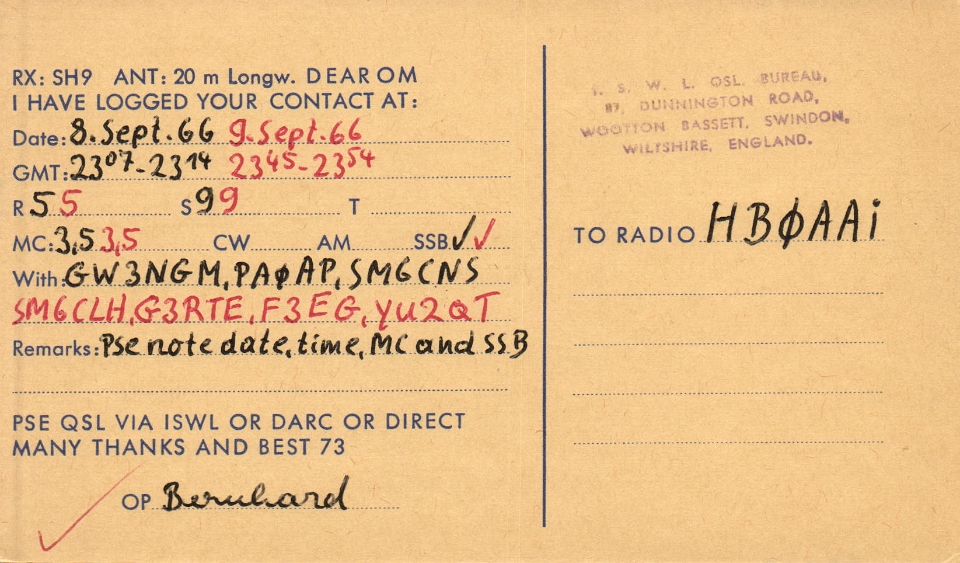 RX: SH9 ANT: 20 m Longw. DEAR OM
I HAVE LOGGED YOUR CONTACT AT:
Date: 8. Sept. 66 9. Sept. 66
GMT: 23⁰⁷-23¹⁴ 23⁴⁵-23⁵⁴
R 5 5 S 9 9 T
MC: 3,5 3,5 CW AM SSB ✓ ✓
With: GW3NGM, PAØAP, SM6CNS
SM6CLH, G3RTE, F3EG, YU2QT
Remarks: Pse note date, time, MC and SSB
PSE QSL VIA ISWL OR DARC OR DIRECT
MANY THANKS AND BEST 73
OP Bernhard
I. S. W. L. QSL. BUREAU,
87, DUNNINGTON ROAD,
WOOTTON BASSETT, SWINDON,
WILTSHIRE, ENGLAND.
TO RADIO HBØAAi